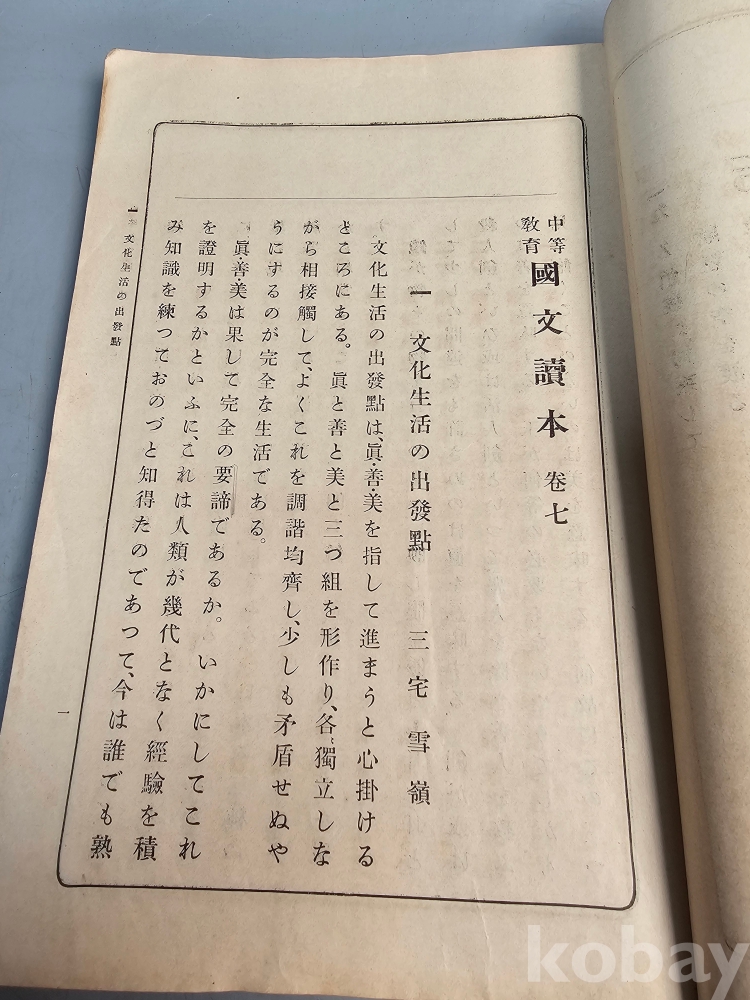 中等教育 國文讀本 卷七
一 文化生活の出發點 三宅雪嶺
文化生活の出發點は、眞・善・美を指して進まうと心掛ける
ところにある。眞と善と美と三つ組を形作り、各〻獨立しな
がら相接觸して、よくこれを調諧均齊し、少しも矛盾せぬや
うにするのが完全な生活である。
眞・善・美は果して完全の要諦であるか。いかにしてこれ
を證明するかといふに、これは人類が幾代となく經驗を積
み知識を練っておのづと知得たのであつて、今は誰でも熟
一 文化生活の出發點
一
kobay